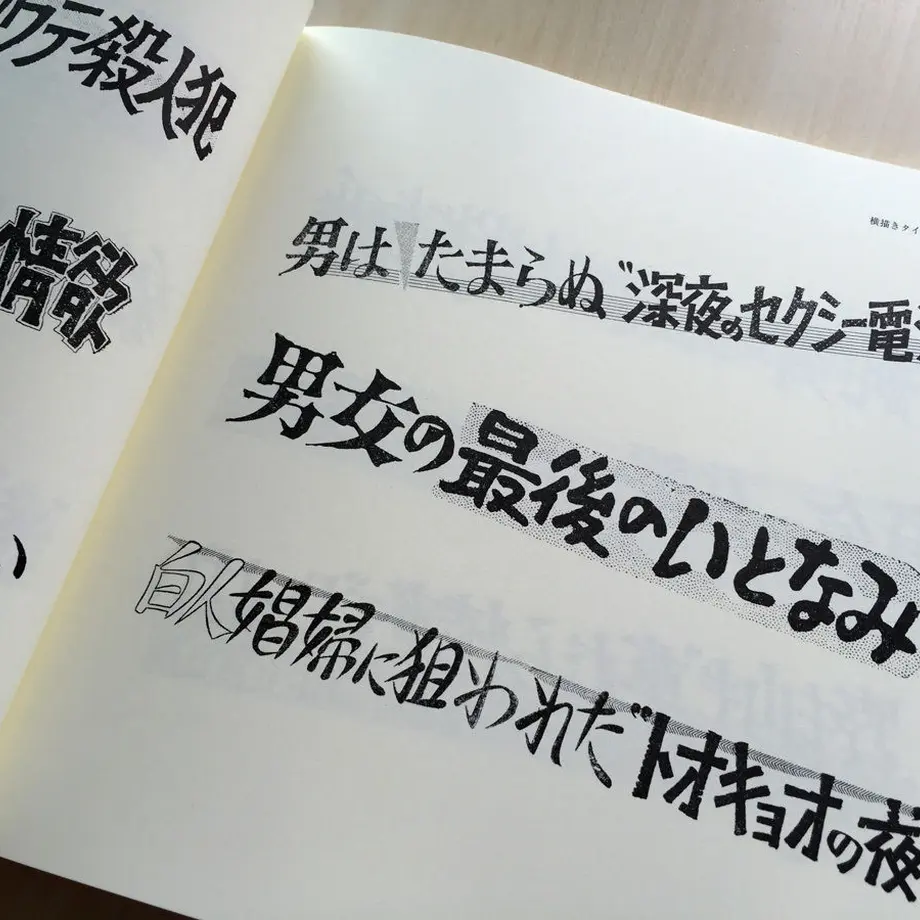 ウテ殺人犯
情欲
い
横描きタイ
男はたまらぬ〝深夜のセクシー電
男女の最後のいとなみ
白人娼婦に狙われた〝トオキョオの夜